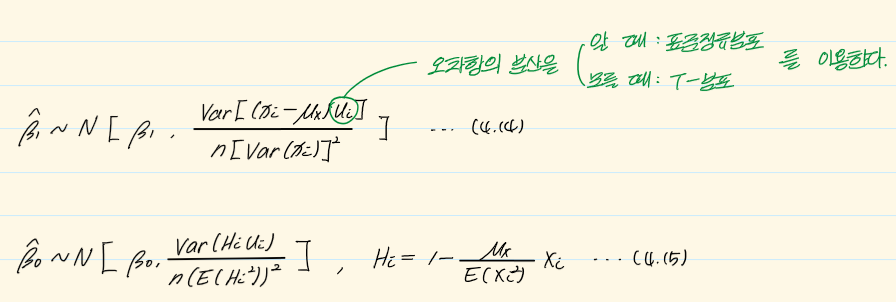 오차항의 분산을 { 알 때 : 표준정규분포
모를 때 : T-분포 를 이용한다.
β̂₁ ~ N [ β₁ , Var[(xᵢ - μₓ)uᵢ] / n[Var(xᵢ)]² ] ... (4.14)
β̂₀ ~ N [ β₀, Var(Hᵢuᵢ) / n(E(Hᵢ²))² ] , Hᵢ = 1 - μₓ / E(Xᵢ²) Xᵢ ... (4.15)